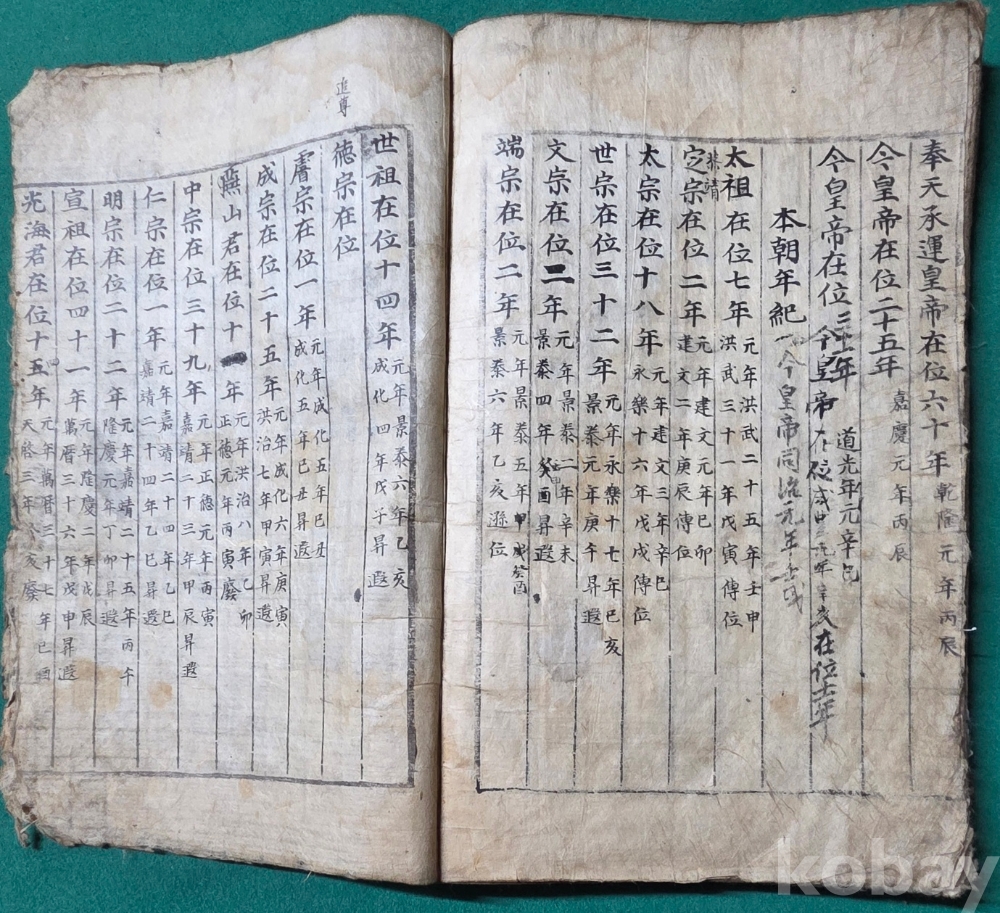 奉天承運皇帝在位六十年 乾隆元年丙辰
今皇帝在位二十五年 嘉慶元年丙辰
今皇帝在位三十年 道光年元辛巳
今皇帝在位 咸豊元年辛亥在位十一年
本朝年紀
今皇帝同治元年壬戌
太祖在位七年 元年洪武二十五年壬申 洪武三十一年戊寅傳位
恭靖
定宗在位二年 元年建文元年巳卯 建文二年庚辰傳位
太宗在位十八年 元年建文三年辛巳 永樂十六年戊戌傳位
世宗在位三十二年 元年永樂十七年巳亥 景泰元年庚午昇遐
文宗在位二年 元年景泰二年辛未 景泰四年癸酉昇遐
端宗在位二年 元年景泰五年甲戌 癸酉 景泰六年乙亥遜位
世祖在位十四年 元年景泰六年乙亥 成化四年戊子昇遐
追尊
德宗在位
睿宗在位一年 元年成化五年巳丑 成化五年巳丑昇遐
成宗在位二十五年 元年成化六年庚寅 洪治七年甲寅昇遐
燕山君在位十年 元年洪治八年乙卯 正德元年丙寅廢
中宗在位三十九年 元年正德元年丙寅 嘉靖二十三年甲辰昇遐
仁宗在位一年 元年嘉靖二十四年乙巳 嘉靖二十四年乙巳昇遐
明宗在位二十二年 元年嘉靖二十五年丙午 隆慶元年丁卯昇遐
宣祖在位四十一年 元年隆慶二年戊辰 萬曆三十六年戊申昇遐
光海君在位十五年 元年萬曆三十七年巳酉 天啓三年癸亥廢
kobay